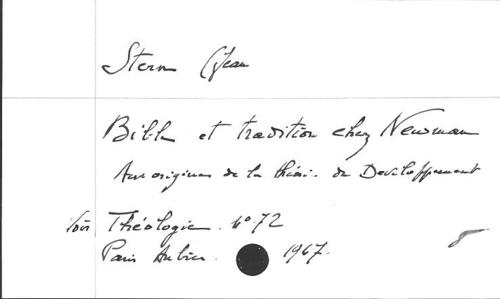 Stern (Jean
Bible et tradition chez Newman
Aux origines de la théorie du Développement
Voir Théologie. n° 72
Paris Aubier. 1967.